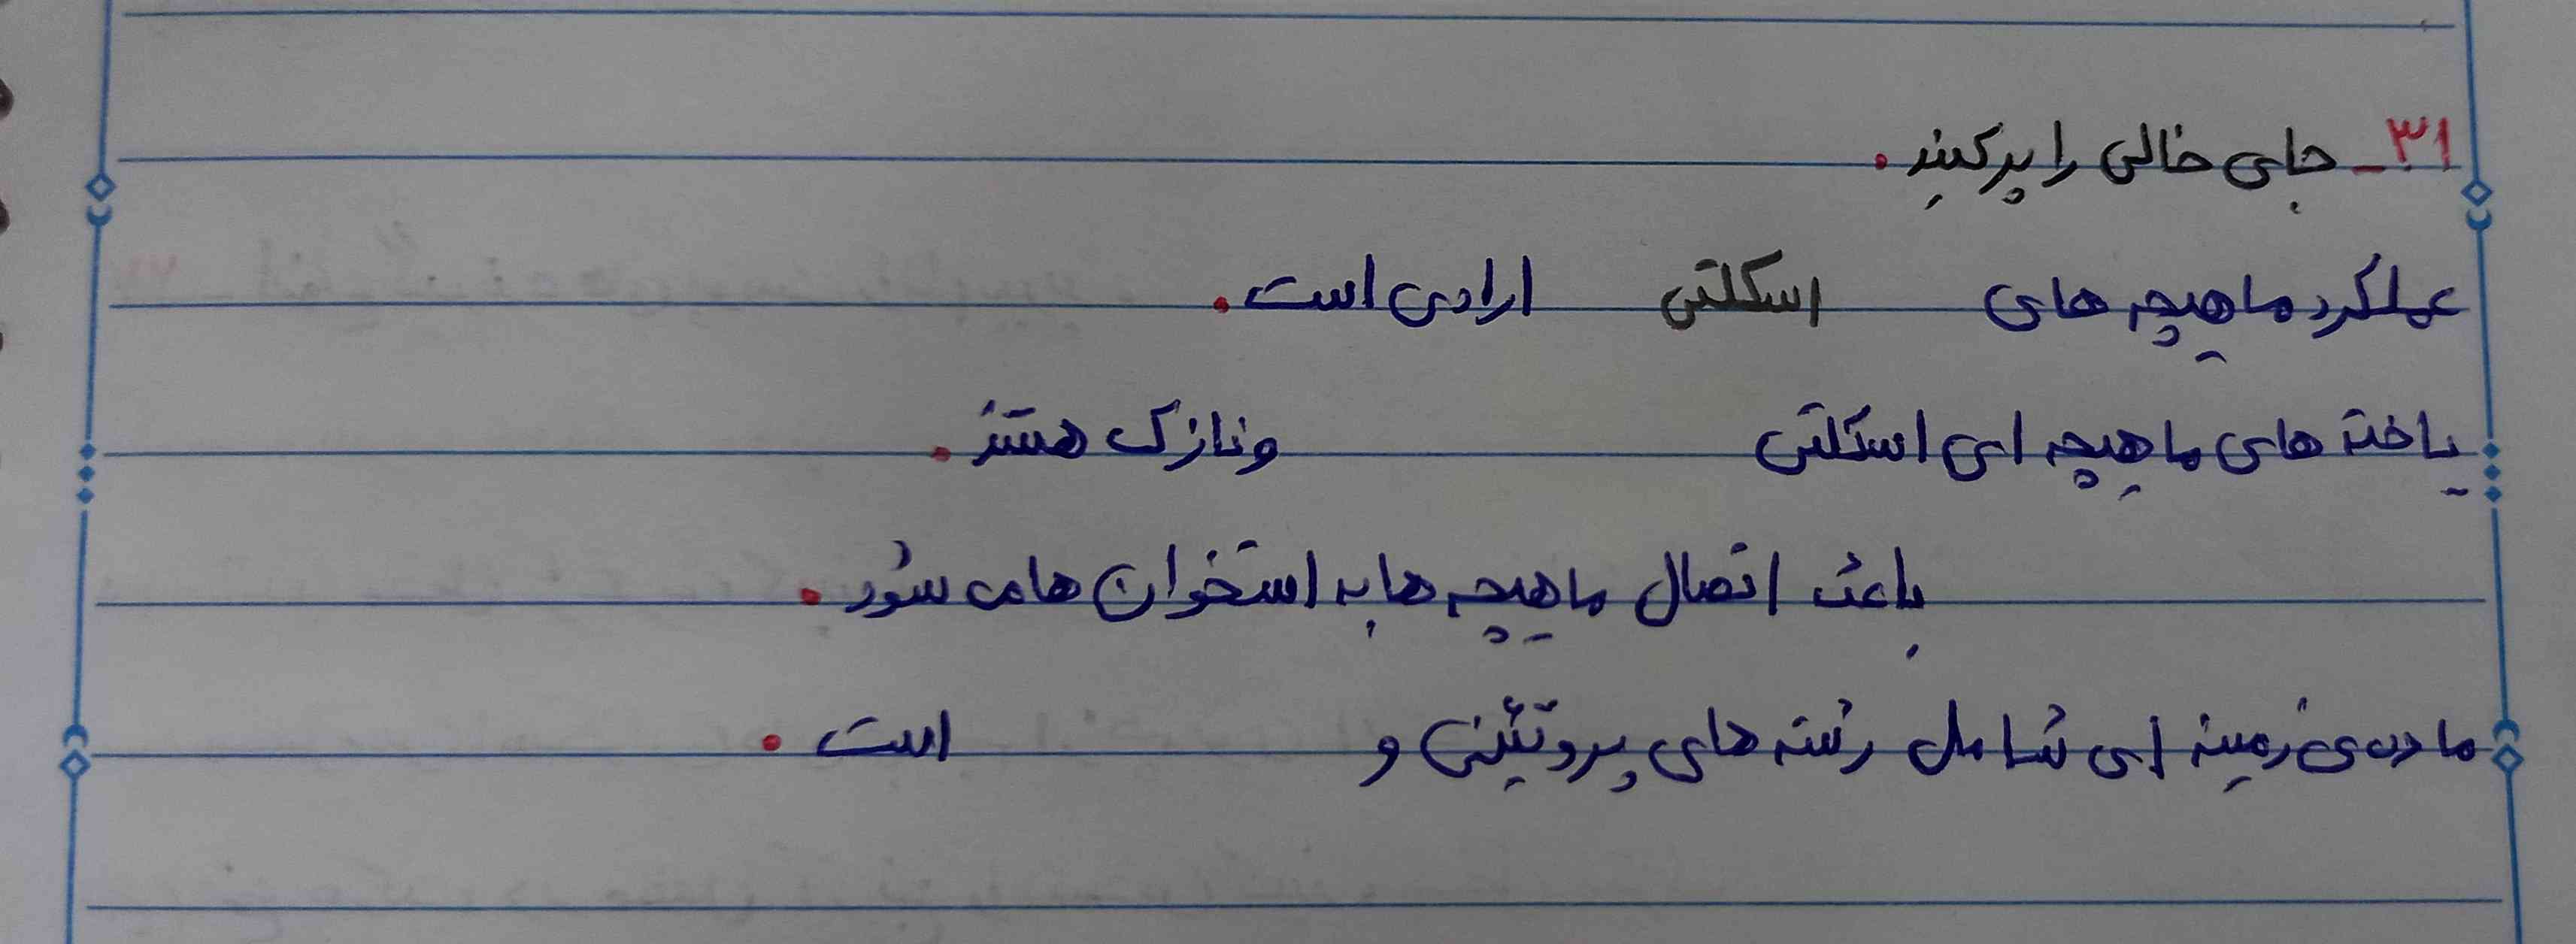 ۳۱_ جای خالی را پر کنید.
عملکرد ماهیچه های اسکلتی ارادی است.
یاخته های ماهیچه ای اسکلتی و نازک هستند.
باعث اتصال ماهیچه ها به استخوان ها می شود.
ماده ی زمینه ای شامل رشته های پروتئینی و است.